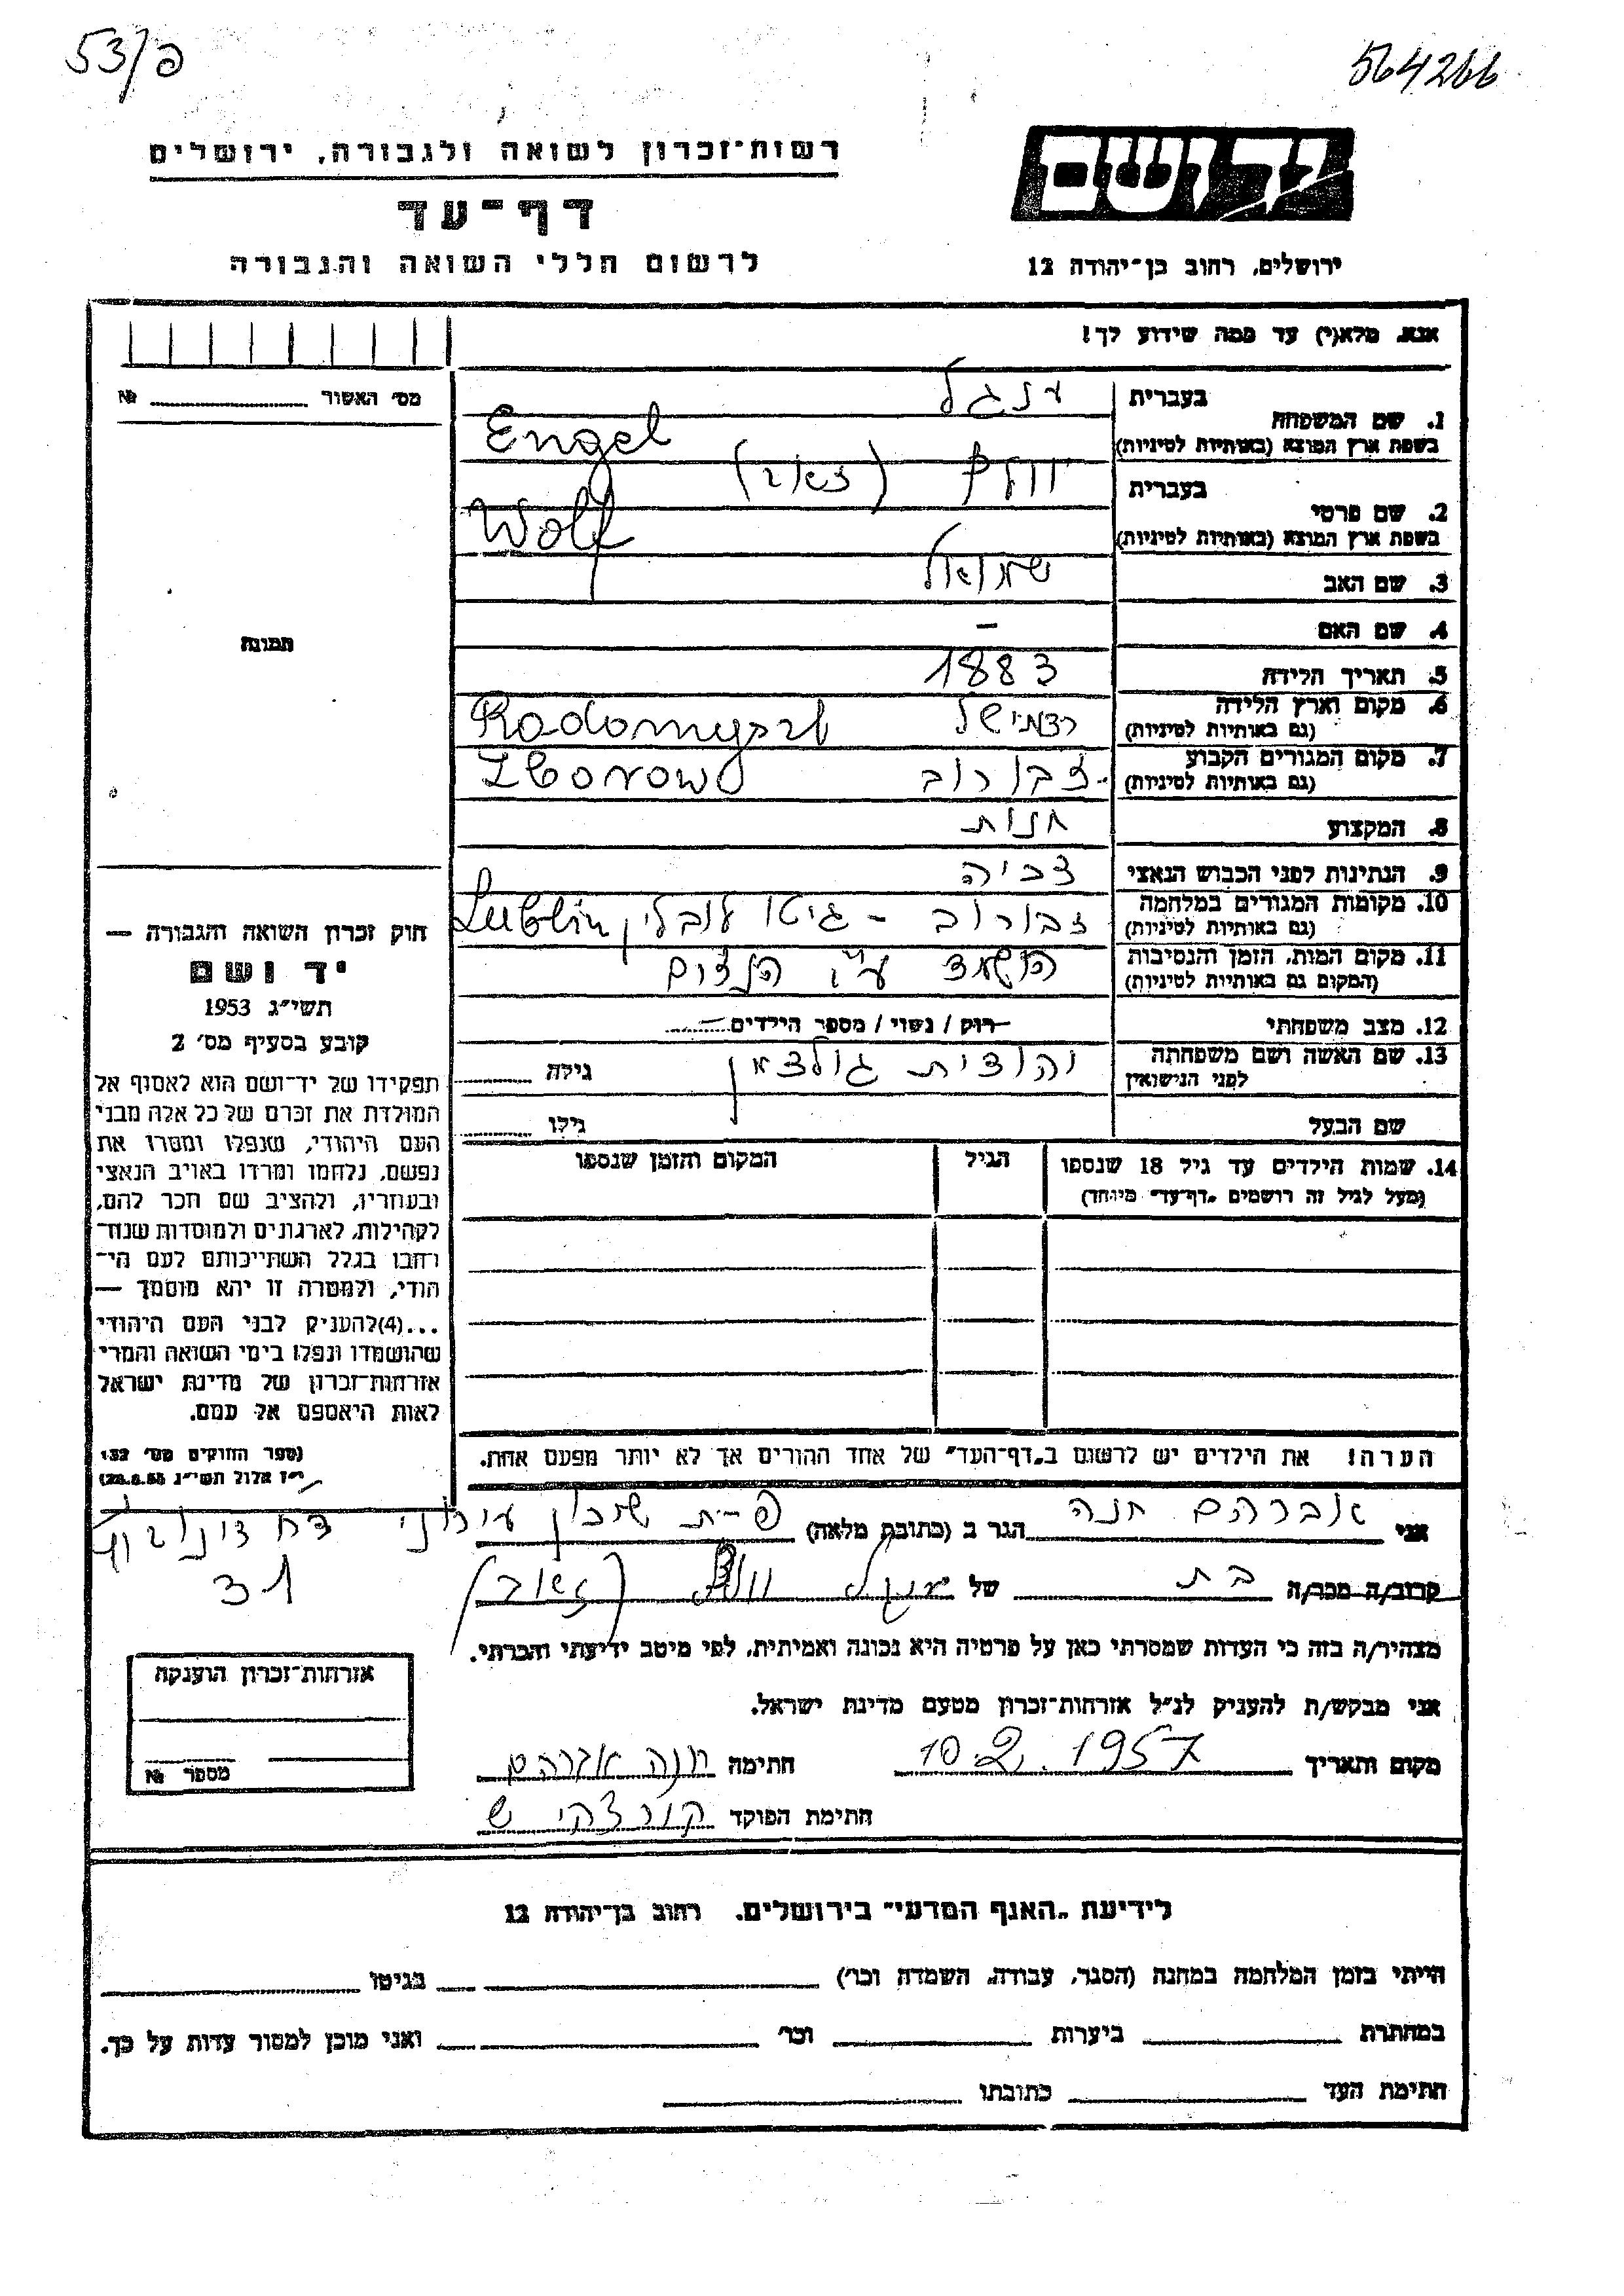 פ/53
564266
יד ושם
רשות־זכרון לשואה ולגבורה, ירושלים
דף־עד
לרשום חללי השואה והגבורה
ירושלים, רחוב בן־יהודה 12
אנא, מלא(י) עד כמה שידוע לך!
מס׳ האשור № ............
1. שם המשפחה בעברית ענגל
בשפת ארץ המוצא (באותיות לטיניות) Engel
2. שם פרטי בעברית וולף (זאב)
בשפת ארץ המוצא (באותיות לטיניות) Wolf
3. שם האב שמואל
4. שם האם –
תמונה
5. תאריך הלידה 1883
6. מקום וארץ הלידה (גם באותיות לטיניות) רדמישל Radomyszl
7. מקום המגורים הקבוע (גם באותיות לטיניות) זבורוב Zborow
8. המקצוע חנות
9. הנתינות לפני הכבוש הנאצי
10. מקומות המגורים במלחמה (גם באותיות לטיניות) זבורוב - גיטו לובלין Lublin
11. מקום המות, הזמן והנסיבות (המקום גם באותיות לטיניות) הושמד ע"י הנצים
12. מצב משפחתי רוק / נשוי / מספר הילדים
13. שם האשה ושם משפחתה לפני הנישואין יהודית גולדמאן גילה
שם הבעל גילו
14. שמות הילדים עד גיל 18 שנספו הגיל המקום והזמן שנספו
(מעל לגיל זה רושמים „דף־עד״ מיוחד)
חוק זכרון השואה והגבורה —
יד ושם
תשי״ג 1953
קובע בסעיף מס׳ 2
תפקידו של יד־ושם הוא לאסוף אל
המולדת את זכרם של כל אלה מבני
העם היהודי, שנפלו ומסרו את
נפשם, נלחמו ומרדו באויב הנאצי
ובעוזריו, ולהציב שם וזכר להם,
לקהילות, לארגונים ולמוסדות שנח־
רבו בגלל השתייכותם לעם הי־
הודי, ולמטרה זו יהא מוסמך —
...(4)להעניק לבני העם היהודי
שהושמדו ונפלו בימי השואה והמרי
אזרחות־זכרון של מדינת ישראל
לאות היאספם אל עמם.
(ספר החוקים מס׳ 132
י״ז אלול תשי״ג 28.8.53)
הערה! את הילדים יש לרשום ב„דף־העד״ של אחד ההורים אך לא יותר מפעם אחת.
אני אברהם חנה הגר ב (כתובת מלאה) פ-ת שיכון עירוני
31
קרוב/ה מכר/ה בת של ענגל וולף (זאב)
מצהיר/ה בזה כי העדות שמסרתי כאן על פרטיה היא נכונה ואמיתית, לפי מיטב ידיעתי והכרתי.
אני מבקש/ת להעניק לנ״ל אזרחות־זכרון מטעם מדינת ישראל.
מקום ותאריך 10.2.1957 חתימה חנה אברהם
חתימת הפוקד קורצקי ש
אזרחות־זכרון הוענקה
מספר №
לידיעת „האנף המדעי״ בירושלים, רחוב בן־יהודה 12
הייתי בזמן המלחמה במחנה (הסגר, עבודה, השמדה וכו׳) בגיטו
במחתרת ביערות וכו׳ ואני מוכן למסור עדות על כך.
חתימת העד כתובתו